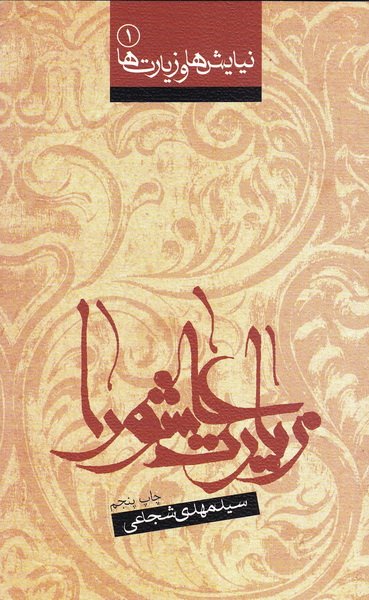 نیایش‌ها و زیارت‌ها ۱
زیارت عاشورا
چاپ پنجم
سید مهدی شجاعی